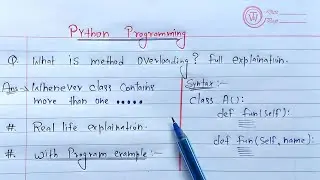 Python Programming
Q. What is method overloading? full explaination.
Ans→ Whenever class contains
more than one .....
#. Real life explaination.
#. With Program example:-
Syntax:-
class A():
def fun(self):
def fun(self, name):